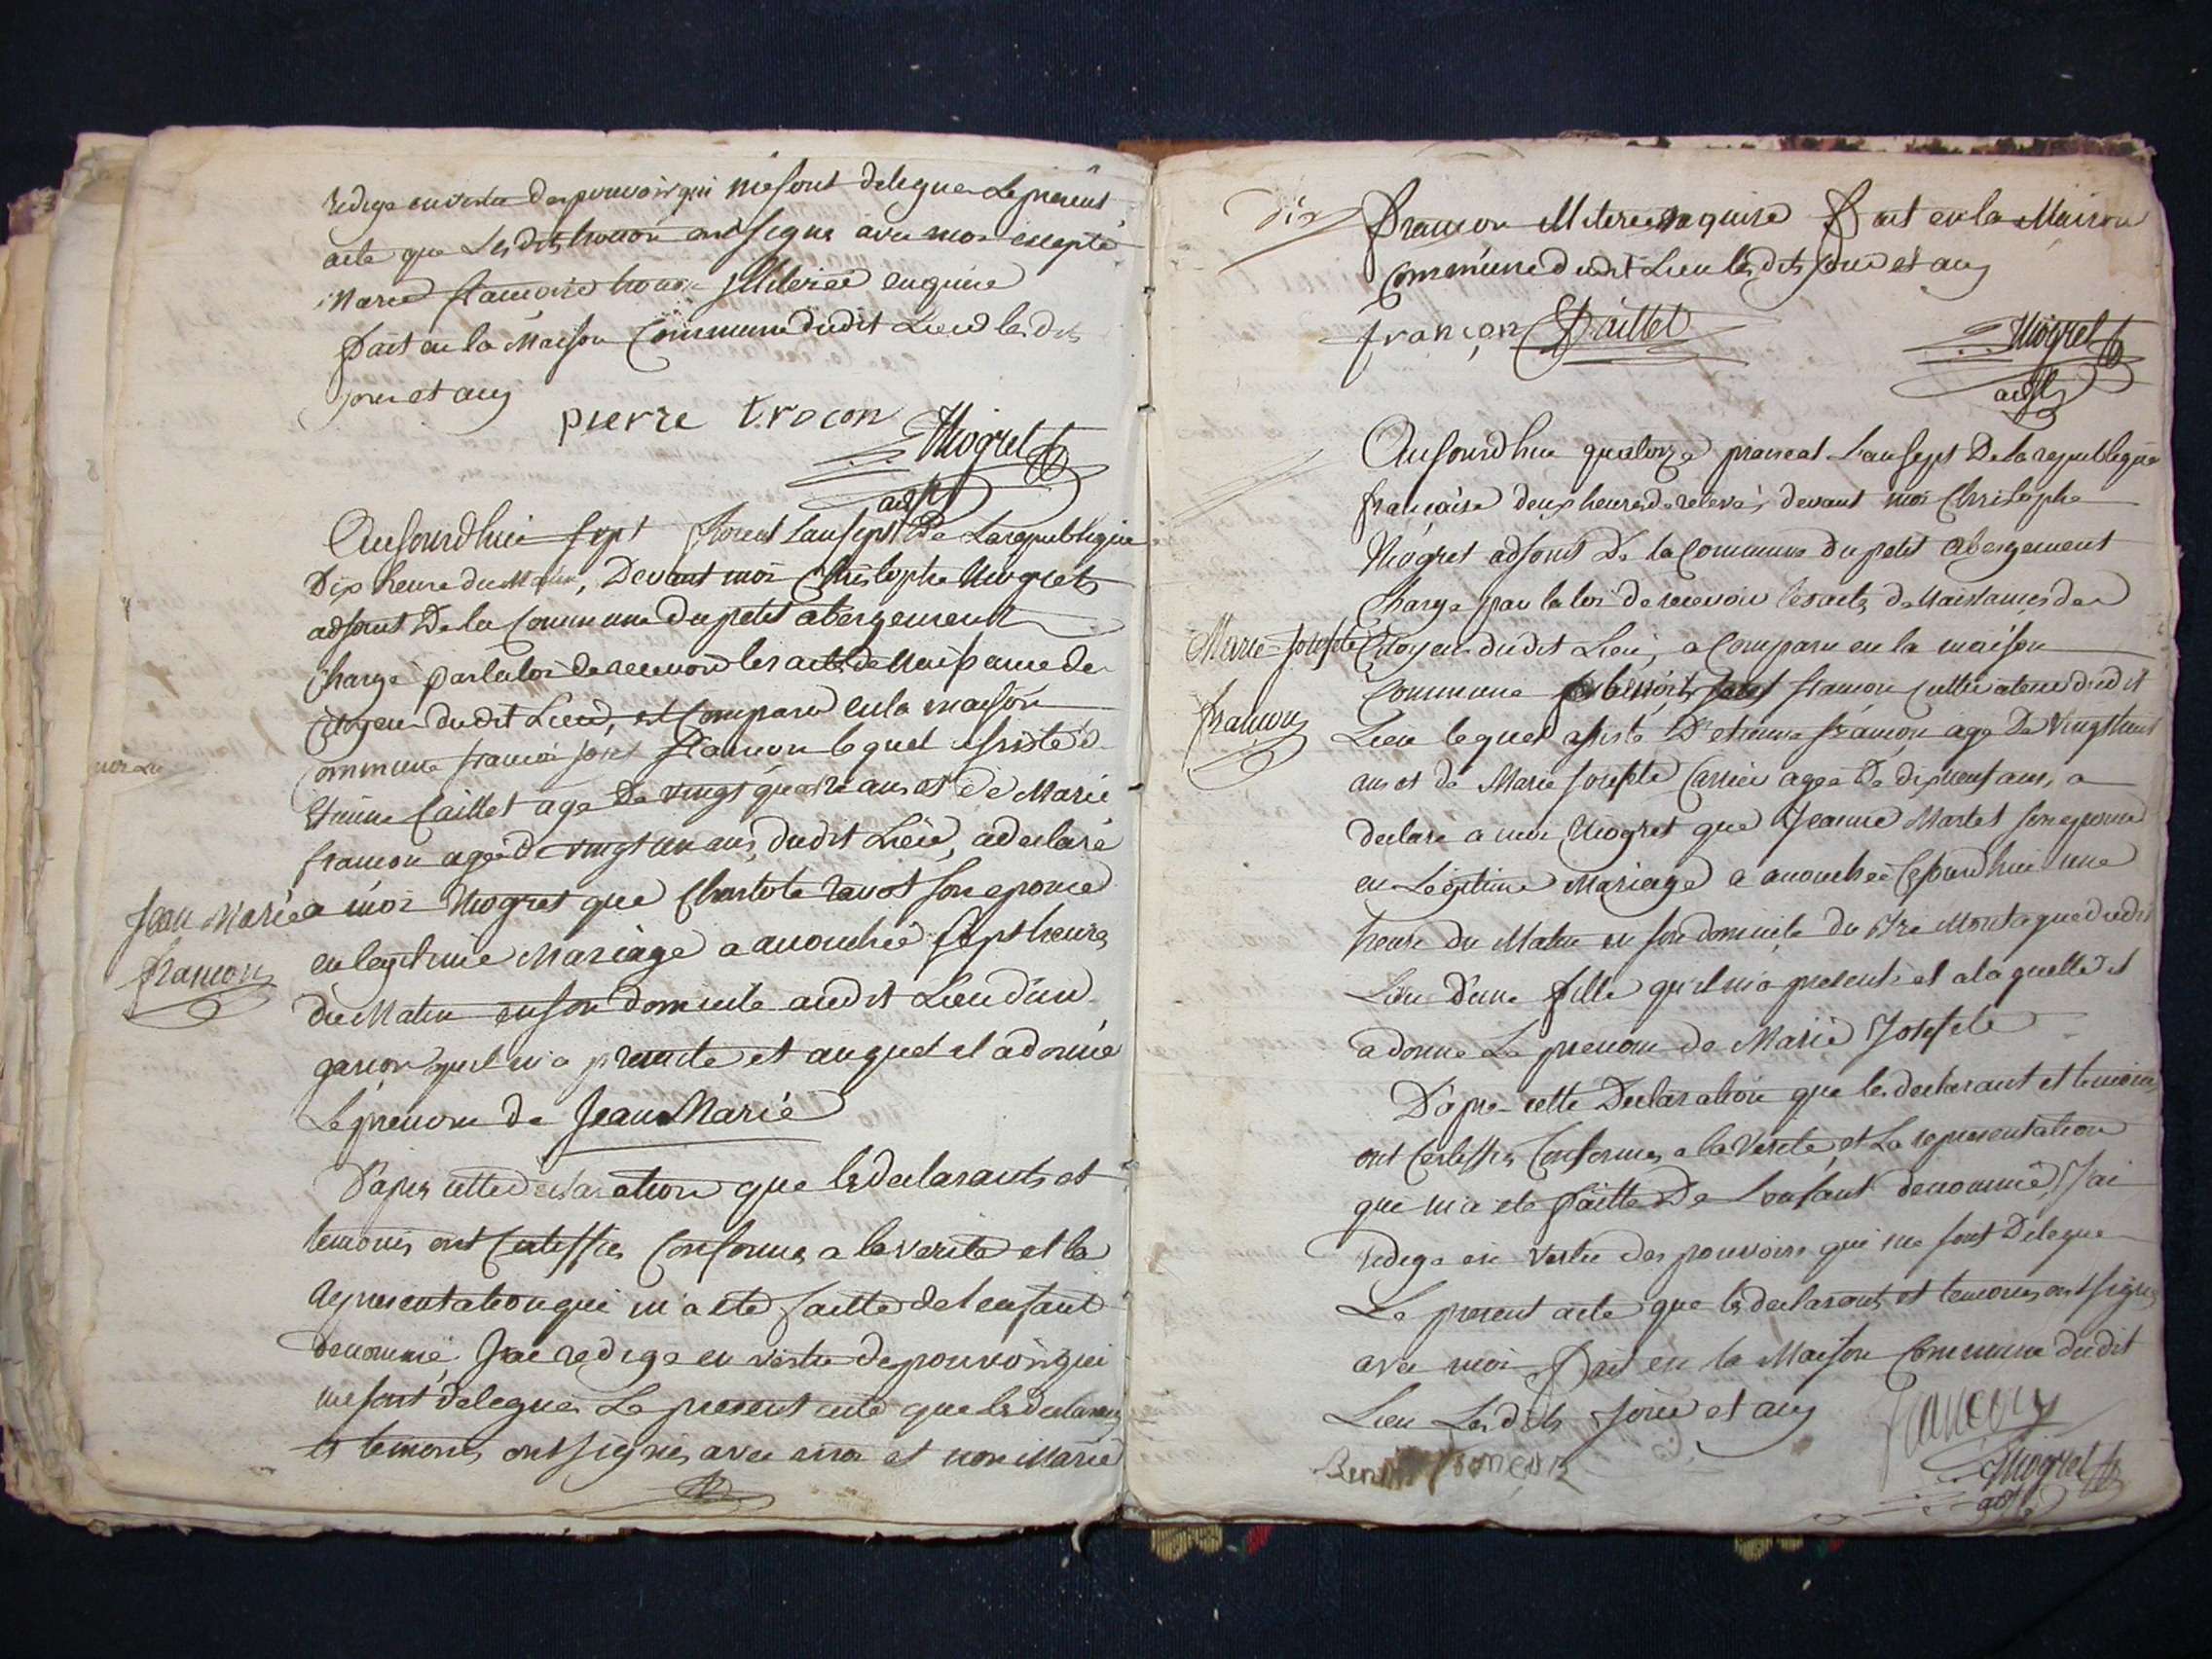 redige en vertu des pouvoir qui me sont delegues Le present
acte que Les dits trocon ont signe avec moi excepté
Marie françoise trocon illiteree enquise
fait en la Maison Commune dudit Lieu les dits
jour et an
pierre trocon
Niogret
adjt
Aujourdhui sept floreal L'an sept De La republique
Dix heure du Matin, Devant moi Christophe Niogret
adjoint De la Commune du petit abergement
Charge par la loi de recevoir les actes de Naissance des
Citoyens dudit Lieu, est Comparu en la maison
Commune francois françon lequel assisté d
Etienne Caillet age De vingt quatre ans et De Marie
françon agée de vingt un ans, dudit Lieu, a declaré
Jean Marie
françon
a moi Niogret que Charlote ravot son epouse
en legitime Mariage a accouchée sept heures
du Matin en son domicile audit Lieu d'un
garçon quil m'a presente et auquel il a donné
Le prenom de Jean Marie
D'apres cette declaration que les declarants et
temoins ont Certiffies Conforme a la verite et la
representation qui m'a ete faitte de l'enfant
denommé, J'ai redige en vertu des pouvoirs qui
me sont delegues Le present acte que les declarants
et temoins ont signes avec moi et non Marie
dix
françon illiteree enquise fait en la Maison
Commune dudit Lieu les dits jour et an
françon Caillet
Niogret
adjt
Aujourdhui quatorze prairial L'an sept De la republique
française deux heures de relevé, devant moi Christophe
Niogret adjoint De la Commune du petit abergement
Charge par la loi de recevoir les actes de Naissances des
Marie Josefte
françon
Citoyens dudit Lieu, a Comparu en la maison
Commune françon Cultivateur dudit
Lieu lequel assisté D'etienne françon age De vingt huit
ans et de Marie Josefte Carrier agée De dix neuf ans, a
declare a moi Niogret que Jeanne Martet son epouse
en Legitime Mariage a accouchée Cejourdhui une
heure du Matin en son domicile du dudit
Lieu D'une fille qu'il m'a presenté et a la quelle il
a donne Le prenom de Marie Josefte
D'apres cette Declaration que les declarant et temoins
ont Certiffies Conformes a la Verite, et La representation
que m'a ete faitte De L'enfant denommé, J'ai
redige en Vertu des pouvoirs qui me sont Delegues
Le present acte que les declarants et temoins ont signes
avec moi fait en la Maison Commune dudit
Lieu Les dits jour et an
françon
françon
Niogret
adjt